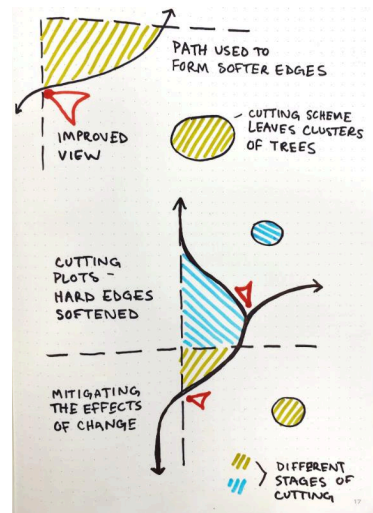 PATH USED TO
FORM SOFTER EDGES
IMPROVED
VIEW
– CUTTING SCHEME
LEAVES CLUSTERS
OF TREES
CUTTING
PLOTS –
HARD EDGES
SOFTENED
MITIGATING
THE EFFECTS
OF CHANGE
DIFFERENT
STAGES OF
CUTTING
17